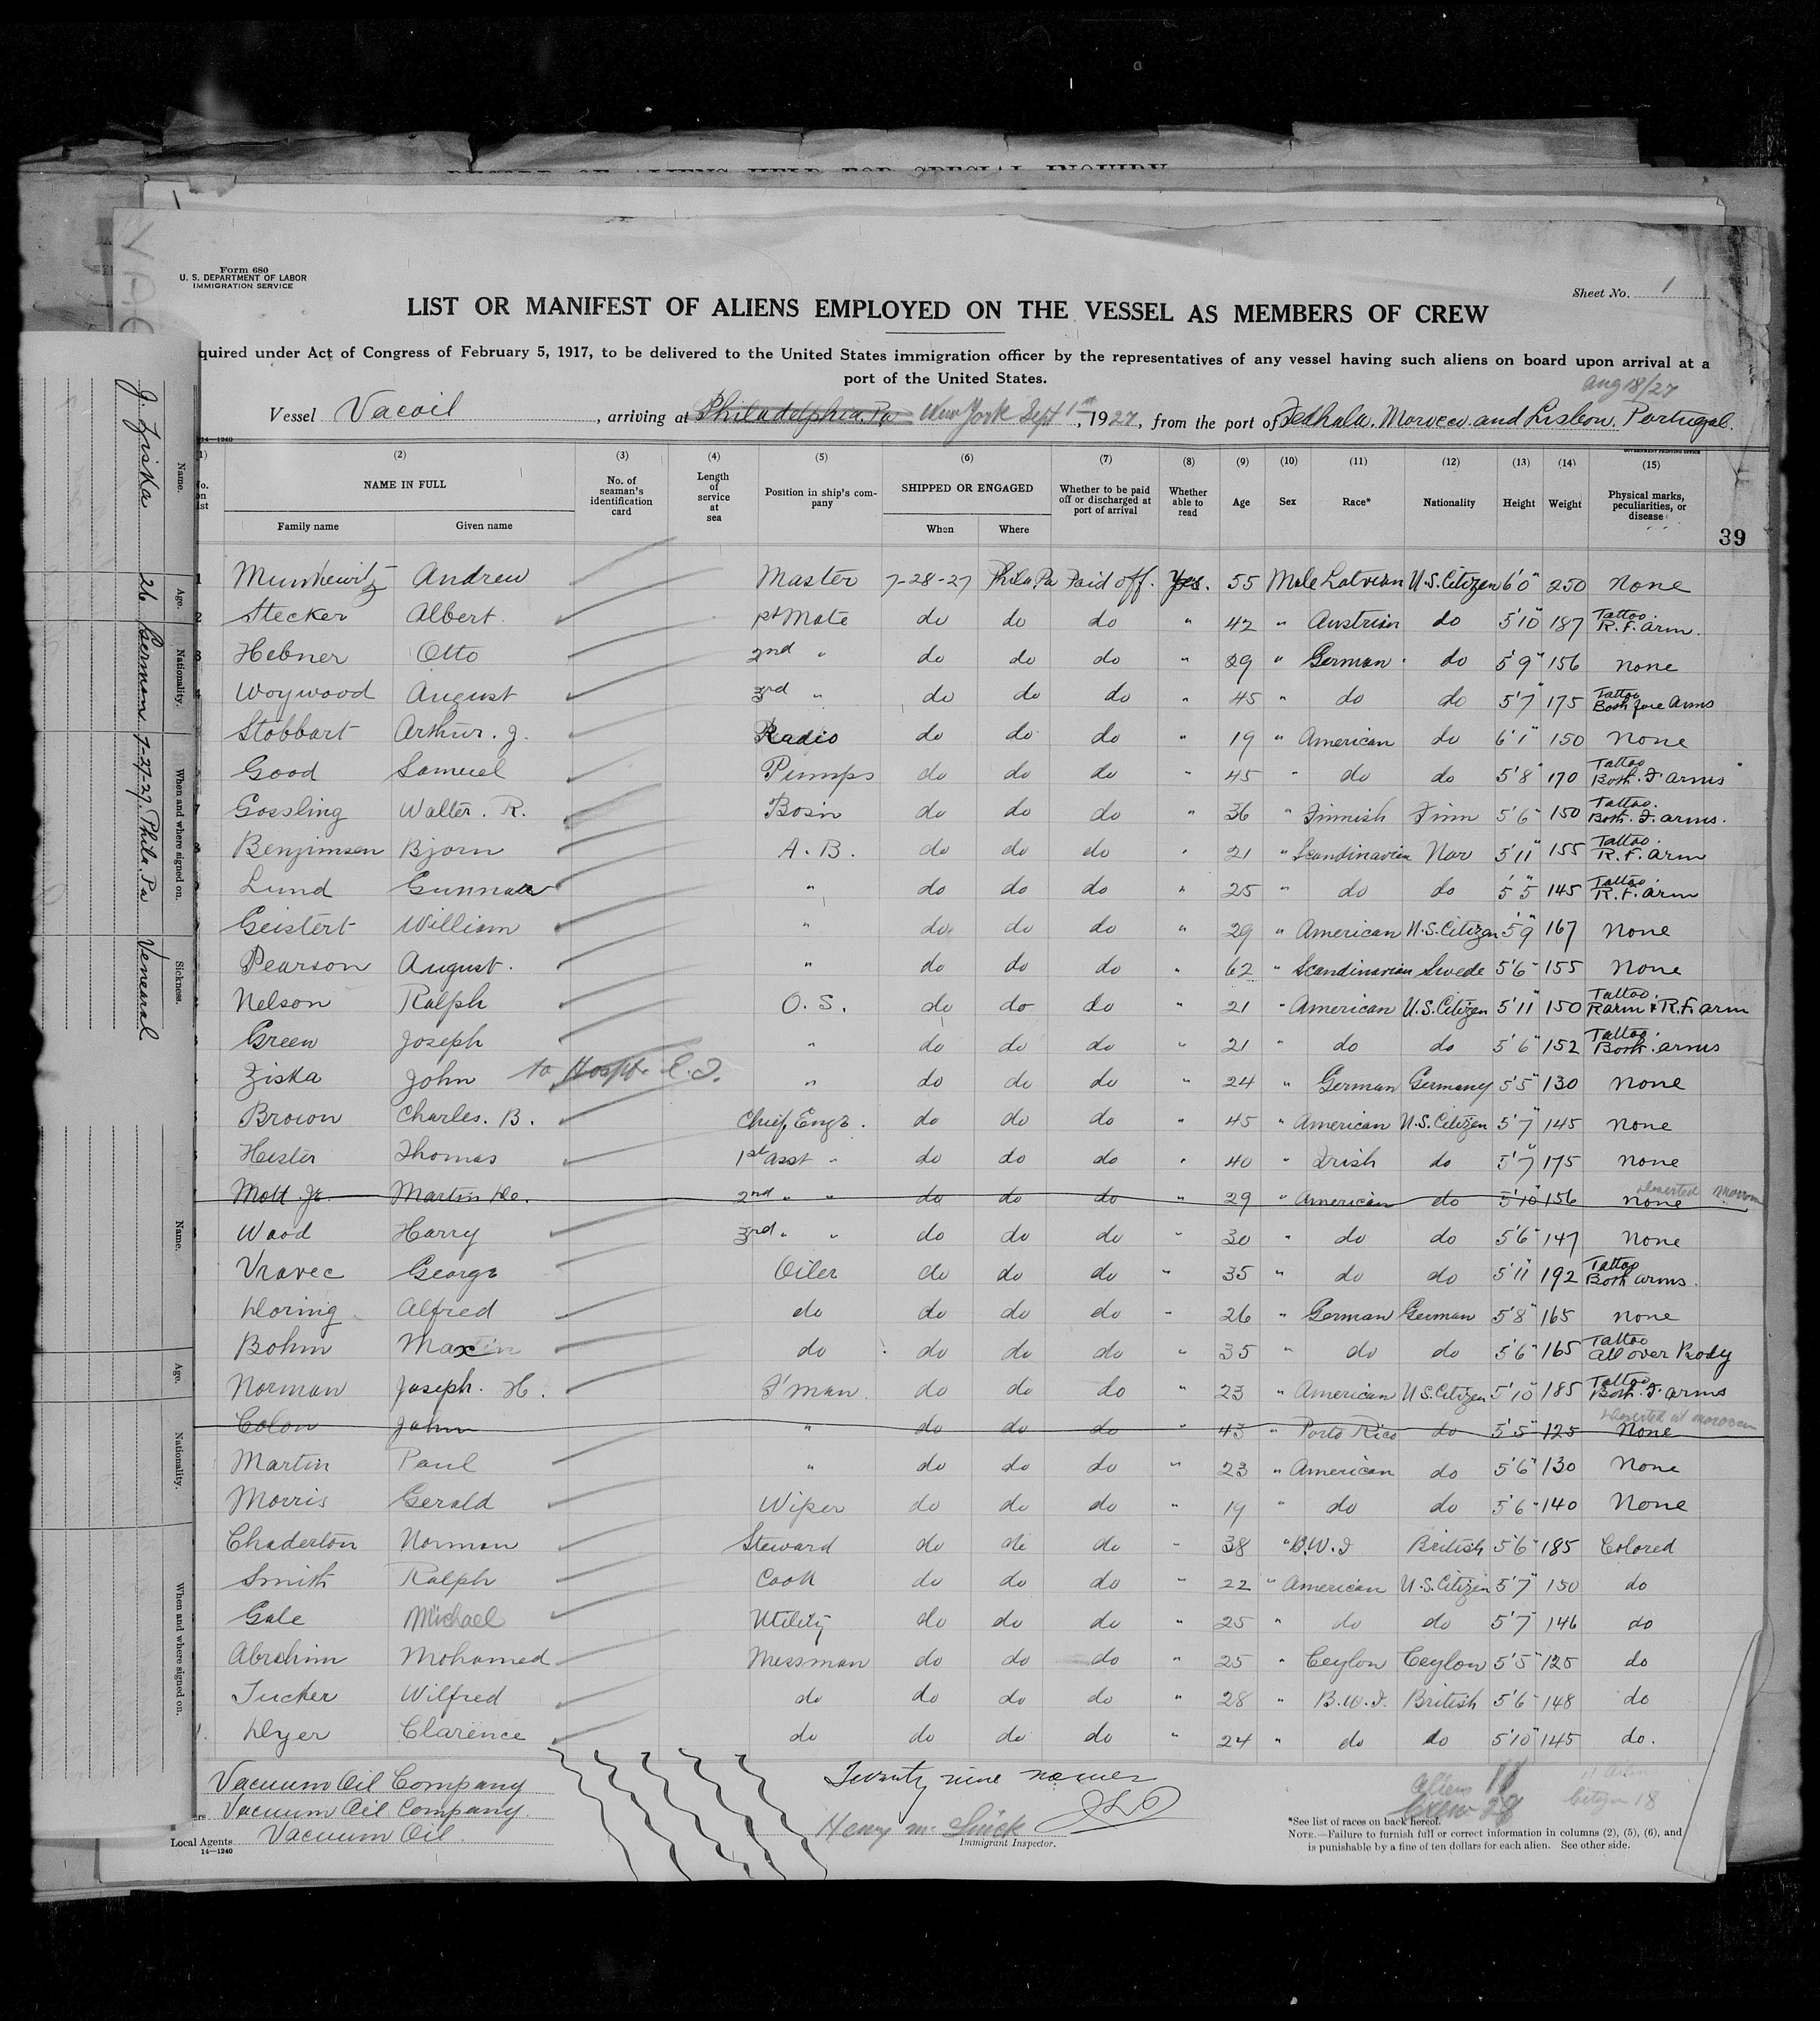 RECORD OF ALIENS HELD FOR SPECIAL INQUIRY
Form 680
U. S. DEPARTMENT OF LABOR
IMMIGRATION SERVICE
Sheet No. 1
LIST OR MANIFEST OF ALIENS EMPLOYED ON THE VESSEL AS MEMBERS OF CREW
quired under Act of Congress of February 5, 1917, to be delivered to the United States immigration officer by the representatives of any vessel having such aliens on board upon arrival at a
port of the United States.
Aug 18/27
Vessel Vacoil, arriving at Philadelphia. Pa New York Sept 1st, 1927, from the port of Fedhala. Morocco and Lisbon. Portugal.
14—1240
GOVERNMENT PRINTING OFFICE
(1) (2) (3) (4) (5) (6) (7) (8) (9) (10) (11) (12) (13) (14) (15)
NAME IN FULL No. of seaman's identification card Length of service at sea Position in ship's company SHIPPED OR ENGAGED Whether to be paid off or discharged at port of arrival Whether able to read Age Sex Race* Nationality Height Weight Physical marks, peculiarities, or disease
Family name Given name When Where
39
1 Munkewitz Andrew Master 7-28-27 Phila Pa Paid off. Yes. 55 Male Latvian U.S. Citizen 6'0" 250 none
2 Stecker Albert 1st Mate do do do " 42 " Austrian do 5'10" 187 Tattoo. R.F. arm.
3 Hebner Otto 2nd " do do do " 29 " German do 5'9" 156 none
4 Woywood August 3rd " do do do " 45 " do do 5'7" 175 Tattoo Both fore Arms
Stobbart Arthur. J. Radio do do do " 19 " American do 6'1" 150 None
Good Samuel Pumps do do do " 45 " do do 5'8" 170 Tattoo Both. F. arms
7 Gossling Walter. R. Bosn do do do " 36 " Finnish Finn 5'6" 150 Tattoo. Both. F. arms.
8 Benjimsen Bjorn A.B. do do do " 21 " Scandinavien Nor 5'11" 155 Tattoo. R.F. arm
Lund Gunnar " do do do " 25 " do do 5'5" 145 Tattoo. R.F. arm
Geistert William " do do do " 29 " American U.S. Citizen 5'9" 167 None
Pearson August. " do do do " 62 " Scandinavian Swede 5'6" 155 None
Nelson Ralph O.S. do do do " 21 " American U.S. Citizen 5'11" 150 Tattoo. R arm & R.F. arm
Green Joseph " do do do " 21 " do do 5'6" 152 Tattoo. Both. arms
Ziska John to Hospt. E.I. " do do do " 24 " German Germany 5'5" 130 None
Brown Charles. B. Chief Engr. do do do " 45 " American U.S. Citizen 5'7" 145 None
Hester Thomas 1st Asst " do do do " 40 " Irish do 5'7" 175 None
Mott Jr. Martin 2nd " " do do do " 29 " American do 5'10" 156 none Deserted
Wood Harry 3rd " " do do do " 30 " do do 5'6" 147 None
Vravec George Oiler do do do " 35 " do do 5'11" 192 Tattoo Both arms.
Doring Alfred do do do do " 26 " German German 5'8" 165 none
Bohm Max do do do do " 35 " do do 5'6" 165 Tattoo All over Body
Norman Joseph. H. F'man. do do do " 23 " American U.S. Citizen 5'10" 185 Tattoo Both. F. arms
Colon John " do do do " 43 " Porto Rico do 5'5" 125 None Deserted at Morocco
Martin Paul " do do do " 23 " American do 5'6" 130 None
Morris Gerald Wiper do do do " 19 " do do 5'6" 140 None
Chaderton Norman Steward do do do " 38 " B.W.I British 5'6" 185 Colored
Smith Ralph Cook do do do " 22 " American U.S. Citizen 5'7" 150 do
Gale Michael Utility do do do " 25 " do do 5'7" 146 do
Abrahim Mohamed Messman do do do " 25 " Ceylon Ceylon 5'5" 125 do
Tucker Wilfred do do do do " 28 " B.W.I. British 5'6" 148 do
Dyer Clarence do do do do " 24 " do do 5'10" 145 do.
Vacuum Oil Company
Vacuum Oil Company.
Local Agents Vacuum Oil
14—1240
Twenty nine names
Henry
Immigrant Inspector.
Aliens 11
Crew 28
Citizen 18
*See list of races on back hereof.
NOTE.—Failure to furnish full or correct information in columns (2), (5), (6), and
is punishable by a fine of ten dollars for each alien. See other side.
Name. Age. Nationality. When and where signed on. Sickness.
J. Ziska 26 German 7-27-27. Phila. Pa Venearal
Name. Age. Nationality. When and where signed on.